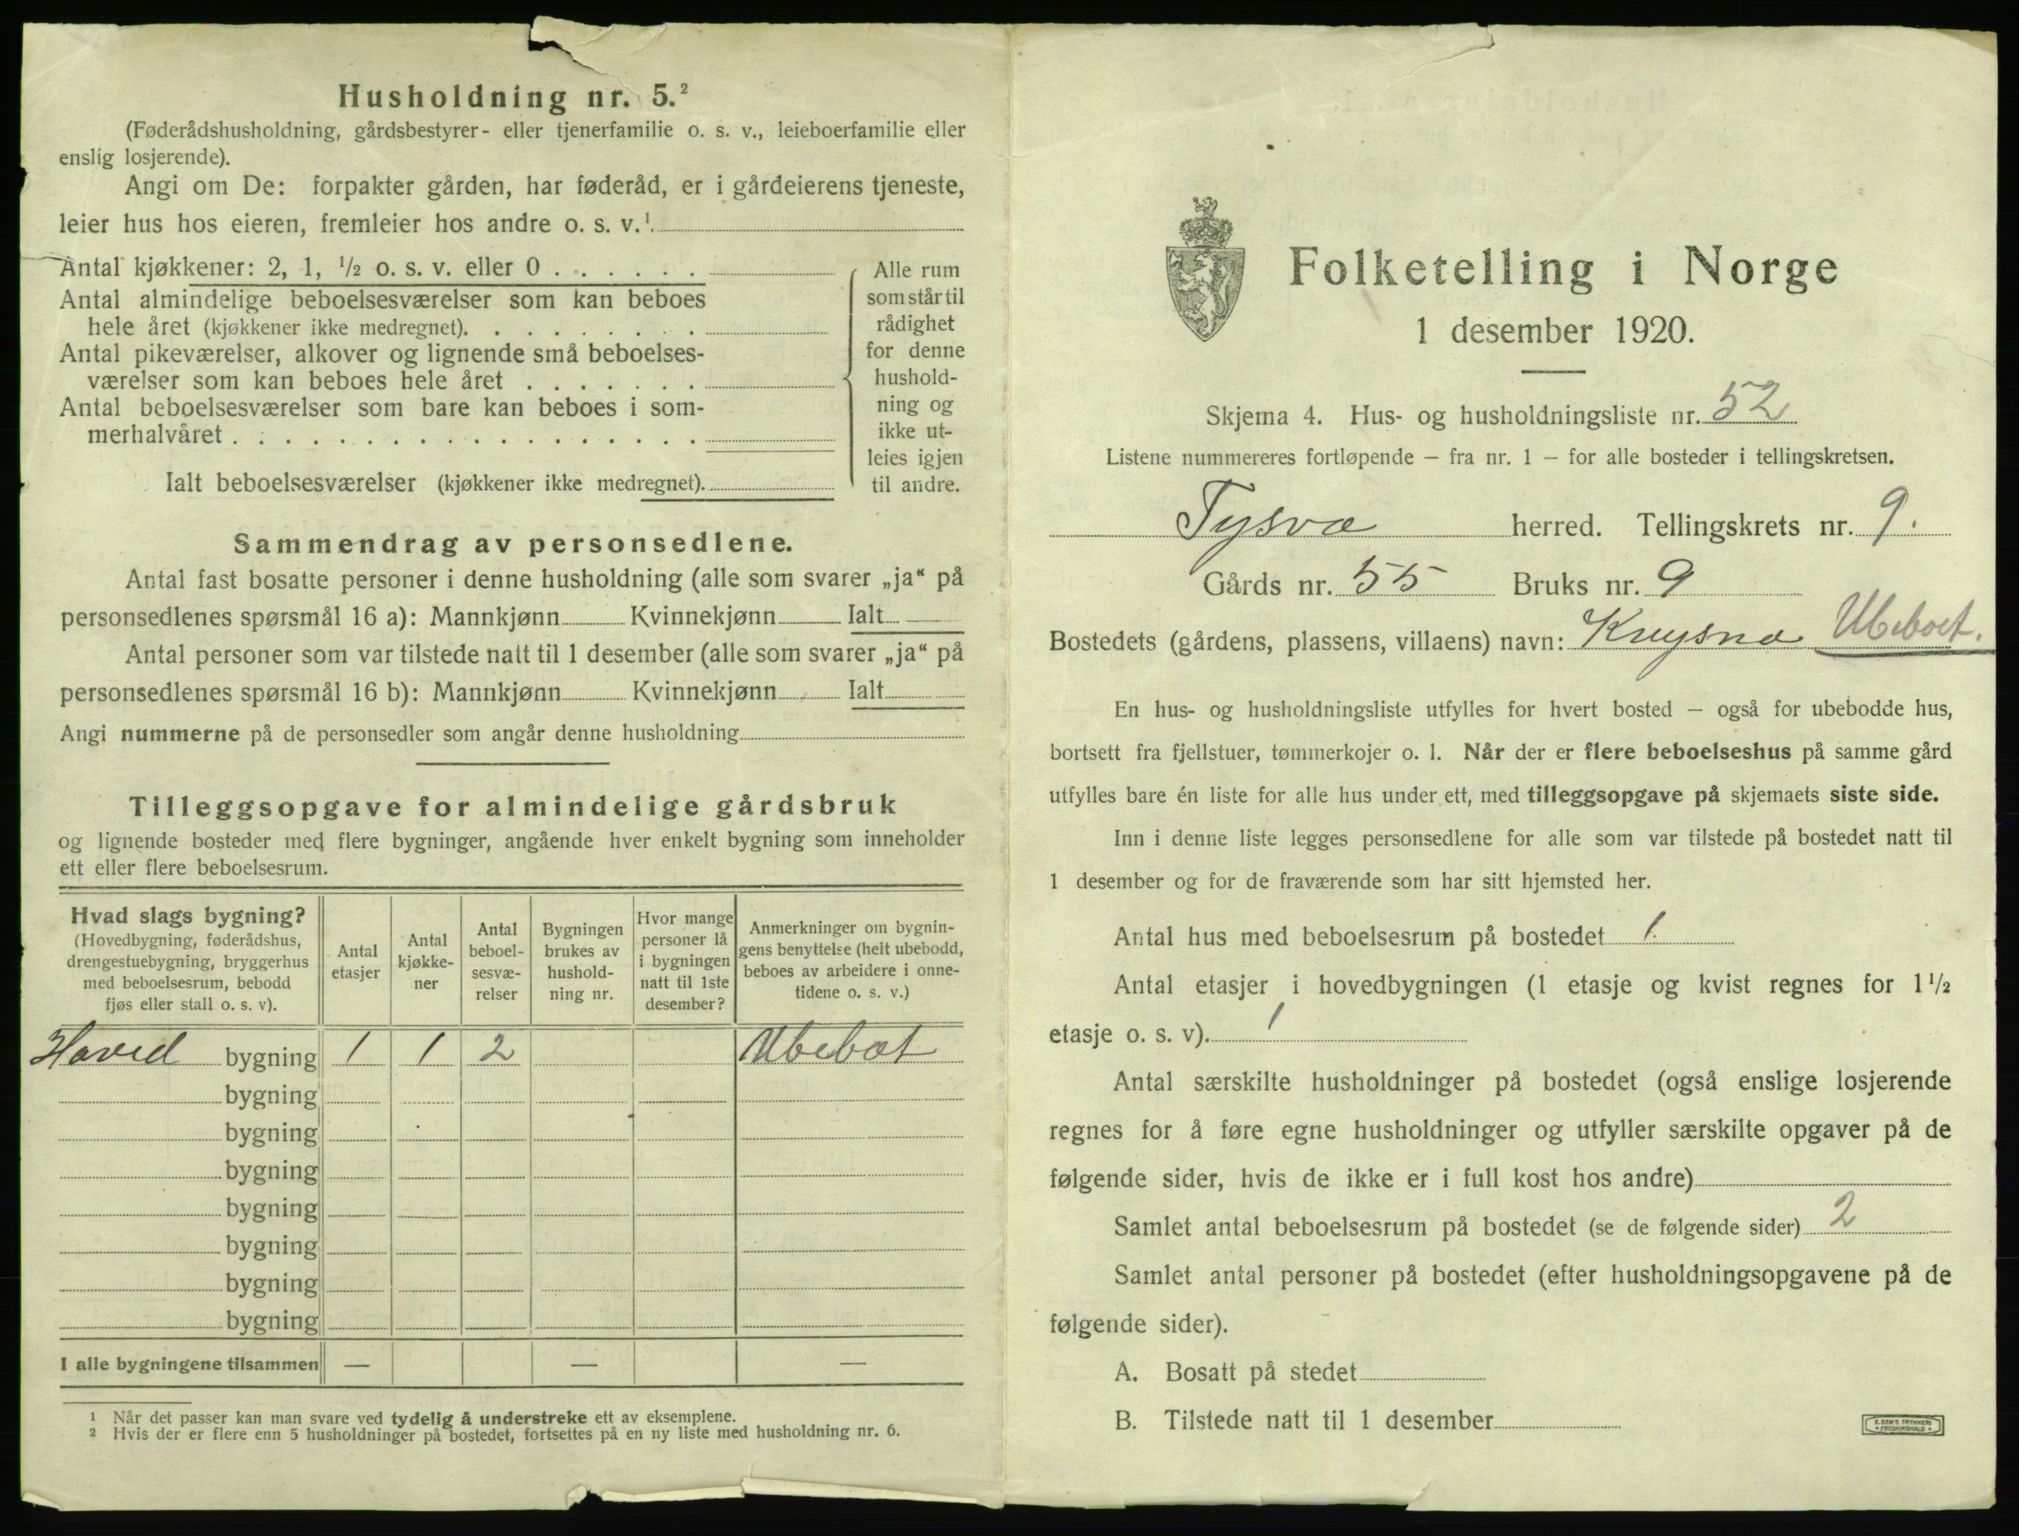 Husholdning nr. 5.²
(Føderådshusholdning, gårdsbestyrer- eller tjenerfamilie o. s. v., leieboerfamilie eller
enslig losjerende).
Angi om De: forpakter gården, har føderåd, er i gårdeierens tjeneste,
leier hus hos eieren, fremleier hos andre o. s. v.¹.
Antal kjøkkener: 2, 1, ½ o. s. v. eller 0 . . . . . .
Antal almindelige beboelsesværelser som kan beboes
hele året (kjøkkener ikke medregnet). . . . . . . . .
Antal pikeværelser, alkover og lignende små beboelses-
værelser som kan beboes hele året . . . . . . .
Antal beboelsesværelser som bare kan beboes i som-
merhalvåret . . . . . . . . . . . . . . . . . .
Ialt beboelsesværelser (kjøkkener ikke medregnet).
Alle rum
som står til
rådighet
for denne
hushold-
ning og
ikke ut-
leies igjen
til andre.
Sammendrag av personsedlene.
Antal fast bosatte personer i denne husholdning (alle som svarer „ja“ på
personsedlenes spørsmål 16 a): Mannkjønn Kvinnekjønn Ialt
Antal personer som var tilstede natt til 1 desember (alle som svarer „ja“ på
personsedlenes spørsmål 16 b): Mannkjønn Kvinnekjønn Ialt
Angi nummerne på de personsedler som angår denne husholdning
Tilleggsopgave for almindelige gårdsbruk
og lignende bosteder med flere bygninger, angående hver enkelt bygning som inneholder
ett eller flere beboelsesrum.
Hvad slags bygning?
(Hovedbygning, føderådshus,
drengestuebygning, bryggerhus
med beboelsesrum, bebodd
fjøs eller stall o. s. v).
Antal
etasjer
Antal
kjøkke-
ner
Antal
beboel-
sesvæ-
relser
Bygningen
brukes av
hushold-
ning nr.
Hvor mange
personer lå
i bygningen
natt til 1ste
desember?
Anmerkninger om bygnin-
gens benyttelse (helt ubebodd,
beboes av arbeidere i onne-
tidene o. s. v.)
Hoved bygning 1 1 2 Ubebot
bygning
bygning
bygning
bygning
bygning
bygning
bygning
I alle bygningene tilsammen — — —
¹ Når det passer kan man svare ved tydelig å understreke ett av eksemplene.
² Hvis der er flere enn 5 husholdninger på bostedet, fortsettes på en ny liste med husholdning nr. 6.
Folketelling i Norge
1 desember 1920.
Skjema 4. Hus- og husholdningsliste nr. 52
Listene nummereres fortløpende — fra nr. 1 — for alle bosteder i tellingskretsen.
Tysvæ herred. Tellingskrets nr. 9.
Gårds nr. 55 Bruks nr. 9
Bostedets (gårdens, plassens, villaens) navn: Knysna Ubeboet.
En hus- og husholdningsliste utfylles for hvert bosted — også for ubebodde hus,
bortsett fra fjellstuer, tømmerkojer o. l. Når der er flere beboelseshus på samme gård
utfylles bare én liste for alle hus under ett, med tilleggsopgave på skjemaets siste side.
Inn i denne liste legges personsedlene for alle som var tilstede på bostedet natt til
1 desember og for de fraværende som har sitt hjemsted her.
Antal hus med beboelsesrum på bostedet 1.
Antal etasjer i hovedbygningen (1 etasje og kvist regnes for 1 ½
etasje o. s. v). 1
Antal særskilte husholdninger på bostedet (også enslige losjerende
regnes for å føre egne husholdninger og utfyller særskilte opgaver på de
følgende sider, hvis de ikke er i full kost hos andre)
Samlet antal beboelsesrum på bostedet (se de følgende sider) 2
Samlet antal personer på bostedet (efter husholdningsopgavene på de
følgende sider).
A. Bosatt på stedet
B. Tilstede natt til 1 desember
E. SEM'S TRYKKERI
FREDRIKSHALD